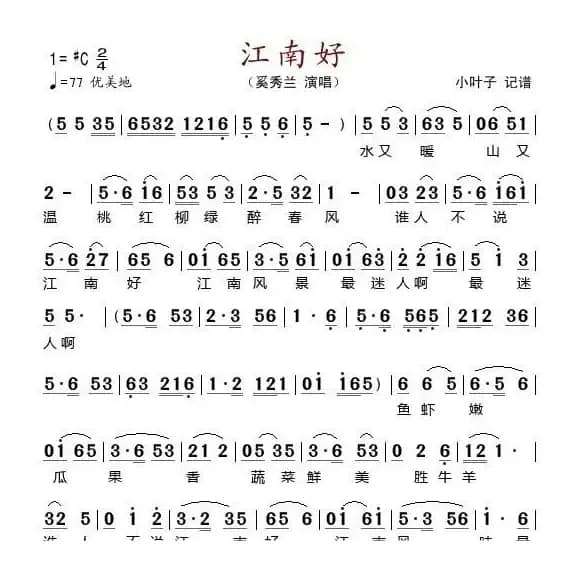 江南好
1=♯C 2/4
♩=77 优美地
（奚秀兰 演唱）
小叶子 记谱
( 5 5 35 | 6532 1216 | 5 5 6 | 5 - ) | 5 5 3 | 63 5 | 06 51 |
水又 暖 山又
2 - | 5·6 i6 | 53 5 3 | 2·5 32 | 1 - | 03 23 | 5·6 i6i |
温 桃红柳绿醉春风 谁人不说
5·6 27 | 65 35 | 0i 65 | 3·5 61 | 01 63 | 2 2 i6 | 5 i 3 |
江南好 江南风景最迷人啊 最迷
5 5· | (5·6 53 | 2·3 56 | 1·6 | 5·6 565 | 212 36 |
人啊
5·6 53 | 63 216 | 1·2 121 | 0i i65) | 6 6 5 | 6·5 6 |
鱼虾嫩
0i 65 | 3·6 53 | 21 2 | 3·6 53 | 0 2 6 | 12 1· |
瓜果香 蔬菜鲜美胜牛羊
32 5 | 0i 2 | 5·6 53 | 2 23 | 0i 6i | 5·3 56 | i· 6 |